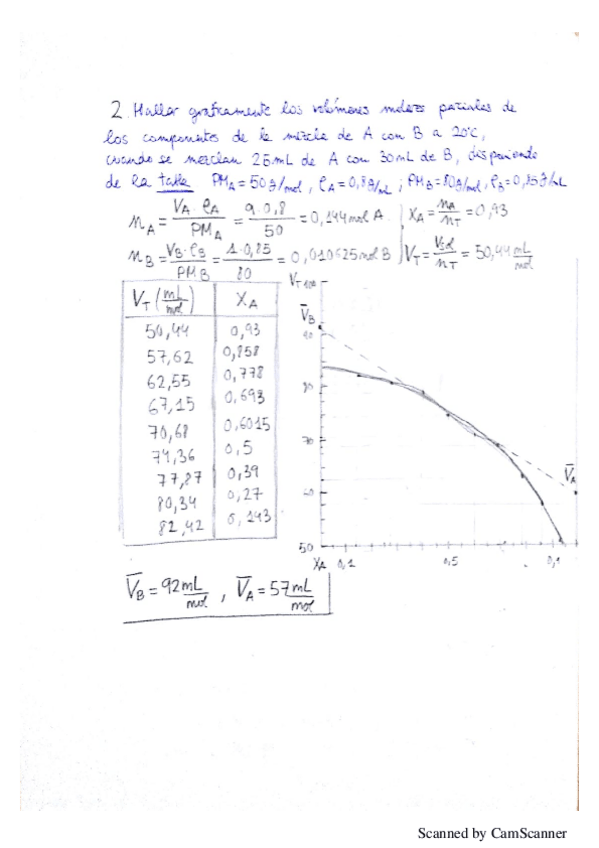 2. Hallar graficamente los volúmenes molares parciales de
los componentes de la mezcla de A con B a 20ºC,
cuando se mezclan 25mL de A con 30mL de B, disponiendo
de la tabla PM_A = 50 g/mol, ρ_A = 0,8 g/mL ; PM_B = 80 g/mol, ρ_B = 0,85 g/mL
n_A = V_A · ρ_A / PM_A = 9 · 0,8 / 50 = 0,144 mol A
X_A = n_A / n_T = 0,93
n_B = V_B · ρ_B / PM_B = 1 · 0,85 / 80 = 0,010625 mol B
V_T = V_sol / n_T = 50,44 mL/mol
V_T (mL/mol) X_A
50,44 0,93
57,62 0,858
62,55 0,778
67,15 0,693
70,68 0,6015
74,36 0,5
77,87 0,39
80,34 0,27
82,42 0,143
V_T 100
V̄_B
90
80
70
V̄_A
60
50
X_A 0,1 0,5 0,1
V̄_B = 92 mL/mol , V̄_A = 57 mL/mol
Scanned by CamScanner